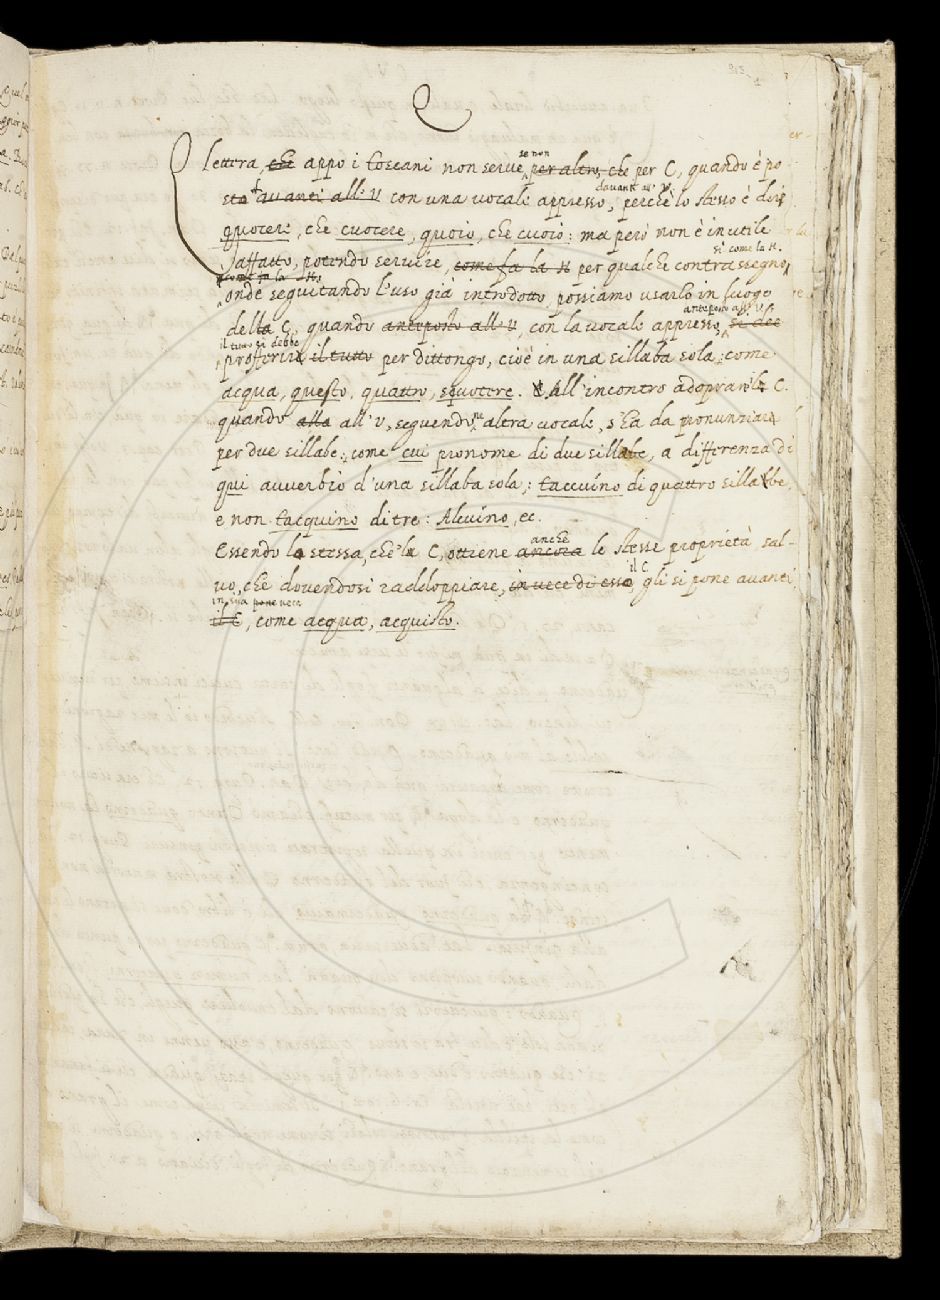 Q
Q lettera, che appo i Toscani non serve, se non per altro, che per C, quando è po
sto avanti all' V con una vocale appresso, davanti all' V. perchè lo stesso è dire
quocere, che cuocere, quoio, che cuoio: ma però non è inutile
affatto, potendo servire, come fa la H per qualche contrassegno, si come la H.
come fa la H,
onde seguitando l'uso già introdotto, possiamo usarlo in luogo
della C, quando anteposto all' V, con la vocale appresso, anteposto all' V, si dee
il tutto si debbe
profferire il tutto per dittongo, cioè in una sillaba sola; come
acqua, questo, quattro, squotere. All'incontro adoprar la C.
quando alla all' V, seguendone altra vocale, s'ha da pronunziare
per due sillabe; come cui pronome di due sillabe, a differenza di
qui avverbio d'una sillaba sola; taccuino di quattro sillabe,
e non tacquino di tre: Alcuino, ec.
Essendo lo stessa, che la C, ottiene anche ancora le stesse proprietà, sal-
vo, che dovendosi raddoppiare, in vece di esso il C gli si pone avanti
in sua vece
il C, come acqua, acquisto.